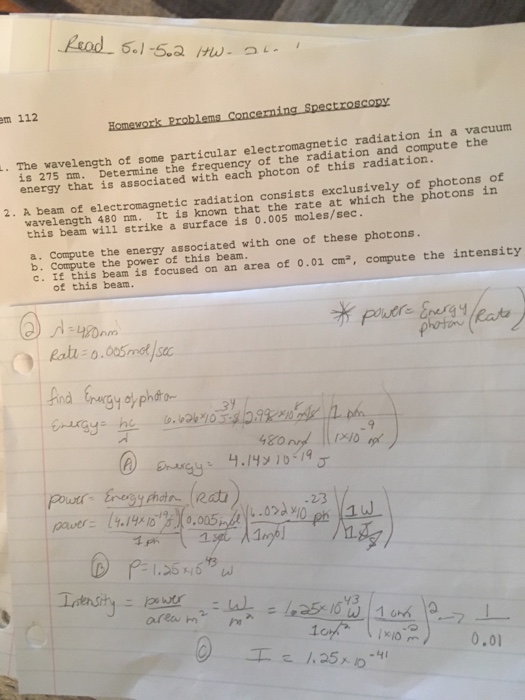 Read 5.1-5.2 HW-
em 112
Homework Problems Concerning Spectroscopy
1. The wavelength of some particular electromagnetic radiation in a vacuum
is 275 nm. Determine the frequency of the radiation and compute the
energy that is associated with each photon of this radiation.
2. A beam of electromagnetic radiation consists exclusively of photons of
wavelength 480 nm. It is known that the rate at which the photons in
this beam will strike a surface is 0.005 moles/sec.
a. Compute the energy associated with one of these photons.
b. Compute the power of this beam.
c. If this beam is focused on an area of 0.01 cm², compute the intensity
of this beam.
② λ=480nm
* power= Energy/photon (Rate)
Rate=0.005mol/sec
find Energy of photon
Energy= hc/λ 6.626x10^-34 J·s | 2.998x10^8 m/s / 480nm (1 nm / 1x10^-9 m)
Ⓐ Energy= 4.14x10^-19 J
power= Energy photon (Rate)
power= (4.14x10^-19 J / 1 ph)(0.005mol / 1 sec)(6.022x10^-23 ph / 1mol)(1W / 1 J/s)
Ⓑ P=1.25x10^-43 W
Intensity = power / area m² = W / m² = 1.25x10^-43 W / 1cm² (1 cm / 1x10^-2 m)² → 1 / 0.01
Ⓒ I = 1.25x10^-41